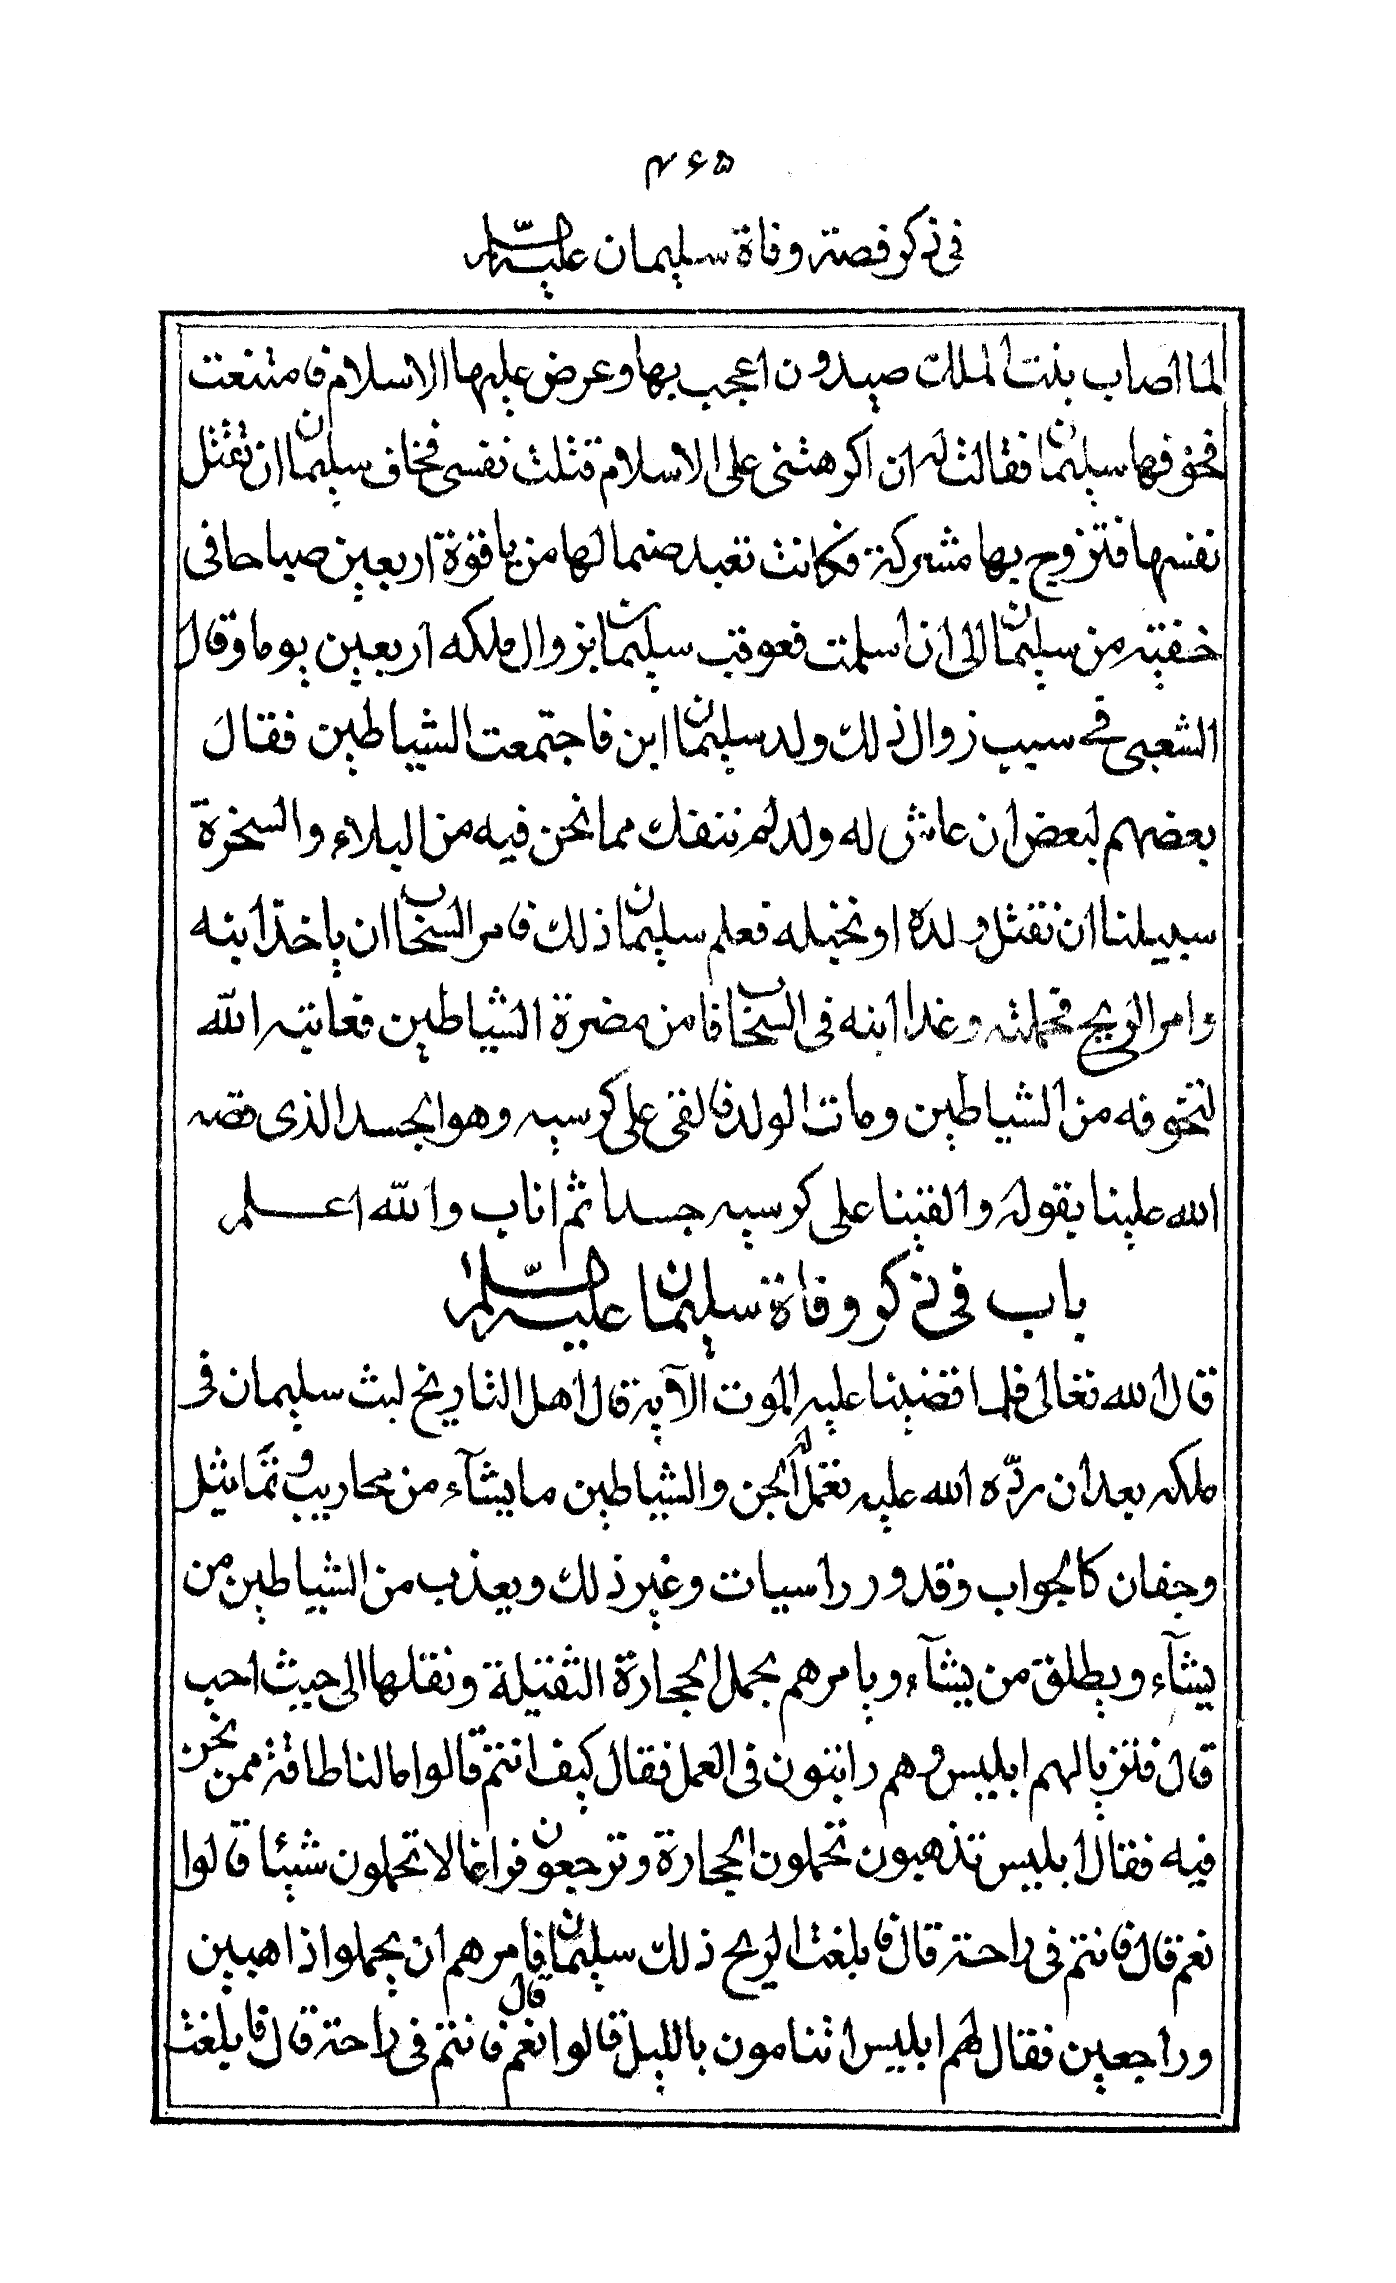 ۴۶۵
في ذكر قصة وفاة سليمان عليه السلام
لما اصاب بنت الملك صيدون اعجب بها وعرض عليها الاسلام فامتنعت
فخوفها سليمان فقالت له ان اكرهتني على الاسلام قتلت نفسي فخاف سليمان ان تقتل
نفسها فتزوج بها مشركة فكانت تعبد صنما لها من ياقوتة اربعين صباحا في
خفية من سليمان الى ان اسلمت فعوقب سليمان بزوال ملكه اربعين يوما وقال
الشعبي في سبب زوال ذلك ولد سليمان ابن فاجتمعت الشياطين فقال
بعضهم لبعض ان عاش له ولد لم ننفك مما نحن فيه من البلاء والسخرة
سبيلنا ان نقتل ولده او نخبله فعلم سليمان ذلك فامر السحاب ان ياخذ ابنه
وامر الريح فحملته وغدا ابنه في السحاب فامن مضرة الشياطين فعاتبه الله
لتخوفه من الشياطين ومات الولد فالقي على كرسيه وهو الجسد الذي قصه
الله علينا بقوله والقينا على كرسيه جسدا ثم اناب والله اعلم
باب في ذكر وفاة سليمان عليه السلام
قال الله تعالى فلما قضينا عليه الموت الآية قال اهل التاريخ لبث سليمان في
ملكه بعد ان ردّه الله عليه تعمل له الجن والشياطين ما يشآء من محاريب وتماثيل
وجفان كالجواب وقدور راسيات وغير ذلك ويعذب من الشياطين من
يشآء ويطلق من يشآء ويامرهم بحمل الحجارة الثقيلة ونقلها الى حيث احب
قال فتزيا لهم ابليس وهم دايبون في العمل فقال كيف انتم قالوا ما لنا طاقة ممن نحن
فيه فقال ابليس تذهبون تحملون الحجارة وترجعون فراغا لا تحملون شيئا قالوا
نعم قال فانتم في راحة قال فابلغت الريح ذلك سليمان فامرهم ان يحملوا ذاهبين
وراجعين فقال لهم ابليس اتنامون بالليل قالوا نعم قال فانتم في راحة قال فابلغت